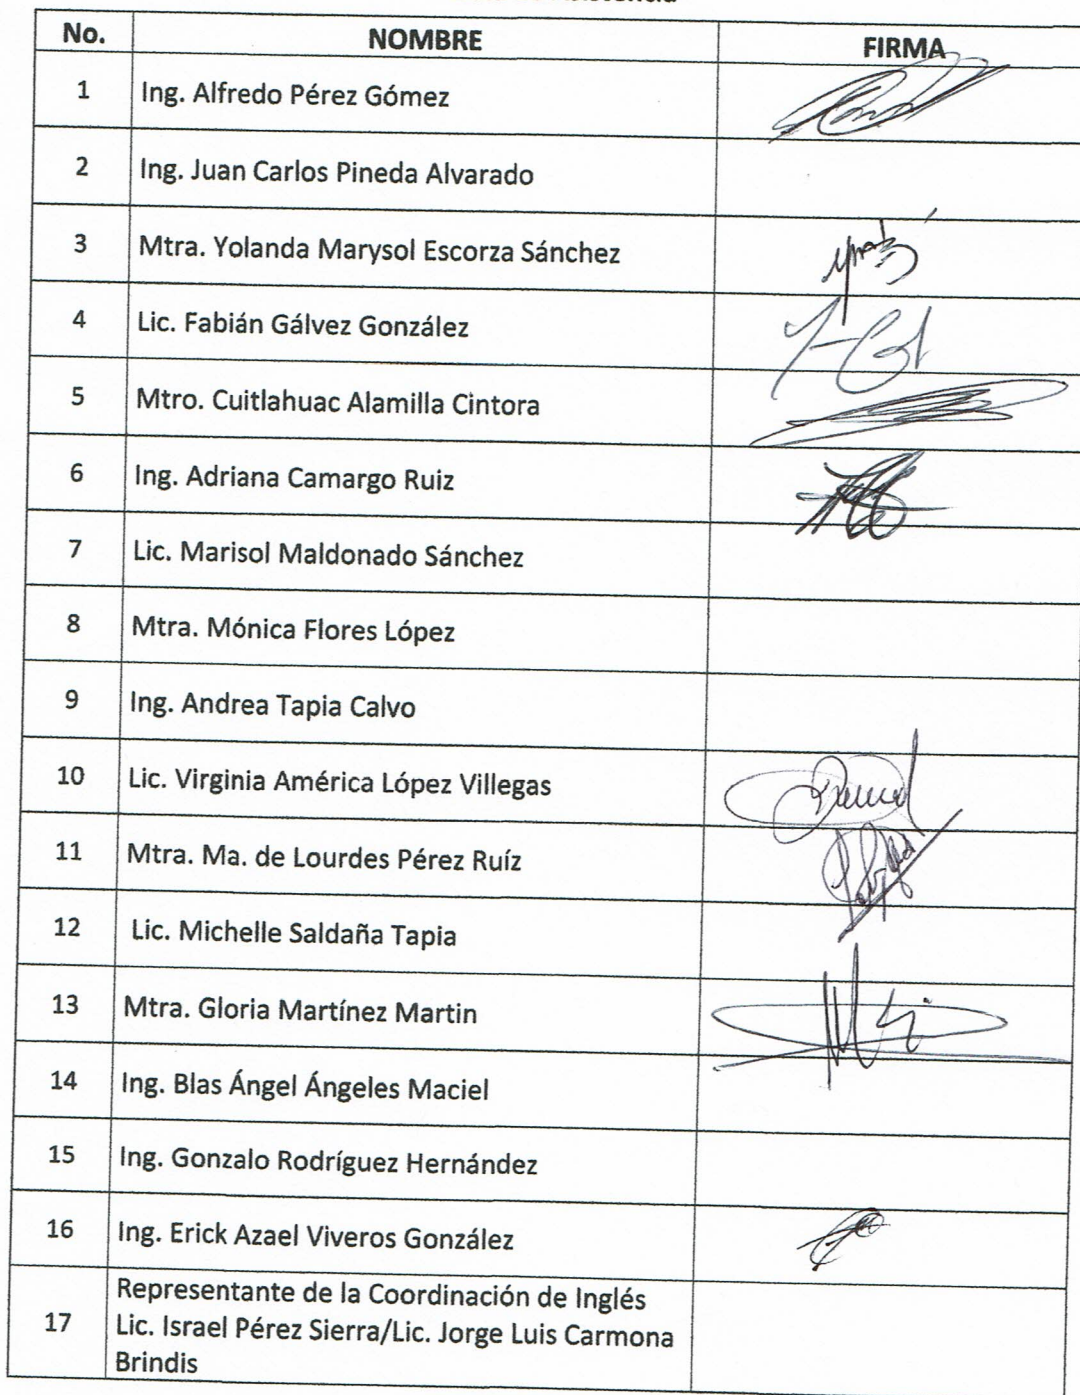 No. NOMBRE FIRMA
1 Ing. Alfredo Pérez Gómez
2 Ing. Juan Carlos Pineda Alvarado
3 Mtra. Yolanda Marysol Escorza Sánchez
4 Lic. Fabián Gálvez González
5 Mtro. Cuitlahuac Alamilla Cintora
6 Ing. Adriana Camargo Ruiz
7 Lic. Marisol Maldonado Sánchez
8 Mtra. Mónica Flores López
9 Ing. Andrea Tapia Calvo
10 Lic. Virginia América López Villegas
11 Mtra. Ma. de Lourdes Pérez Ruíz
12 Lic. Michelle Saldaña Tapia
13 Mtra. Gloria Martínez Martin
14 Ing. Blas Ángel Ángeles Maciel
15 Ing. Gonzalo Rodríguez Hernández
16 Ing. Erick Azael Viveros González
17 Representante de la Coordinación de Inglés
Lic. Israel Pérez Sierra/Lic. Jorge Luis Carmona
Brindis